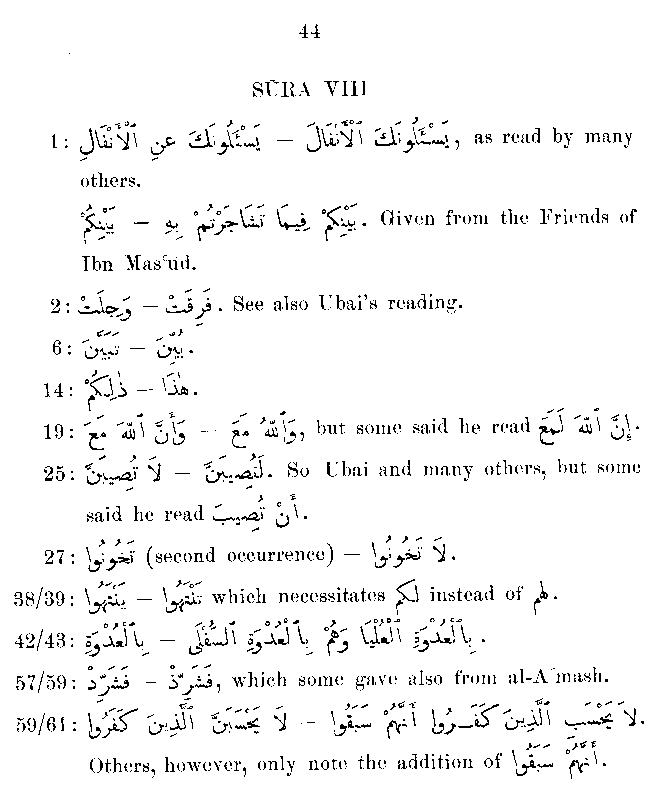 44
SŪRA VIII
1: يَسْـَٔلُونَكَ عَنِ ٱلْأَنْفَالِ — يَسْـَٔلُونَكَ ٱلْأَنْفَالَ, as read by many
others.
بَيْنِكُمْ — بَيْنِكُمْ فِيمَا تَشَاجَرْتُمْ بِهِ. Given from the Friends of
Ibn Masʿūd.
2: وَجِلَتْ — فَرِقَتْ. See also Ubai's reading.
6: تَبَيَّنَ — بُيِّنَ.
14: ذٰلِكُمْ — هٰذَا.
19: وَأَنَّ ٱللّٰهَ مَعَ — وَٱللّٰهُ مَعَ, but some said he read إِنَّ ٱللّٰهَ لَمَعَ.
25: لَا تُصِيبَنَّ — لَتُصِيبَنَّ. So Ubai and many others, but some
said he read أَنْ تُصِيبَ.
27: تَخُونُوا (second occurrence) — لَا تَخُونُوا.
38/39: يَنْتَهُوا — تَنْتَهُوا which necessitates لكم instead of لهم.
42/43: بِٱلْعُدْوَةِ — بِٱلْعُدْوَةِ ٱلْعُلْيَا وَهُمْ بِٱلْعُدْوَةِ ٱلسُّفْلَى.
57/59: فَشَرِّدْ — فَشَرِّذْ, which some gave also from al-Aʿmash.
59/61: لَا يَحْسَبَنَّ ٱلَّذِينَ كَفَرُوا — لَا يَحْسَبِ ٱلَّذِينَ كَفَرُوا أَنَّهُمْ سَبَقُوا.
Others, however, only note the addition of أَنَّهُمْ سَبَقُوا.